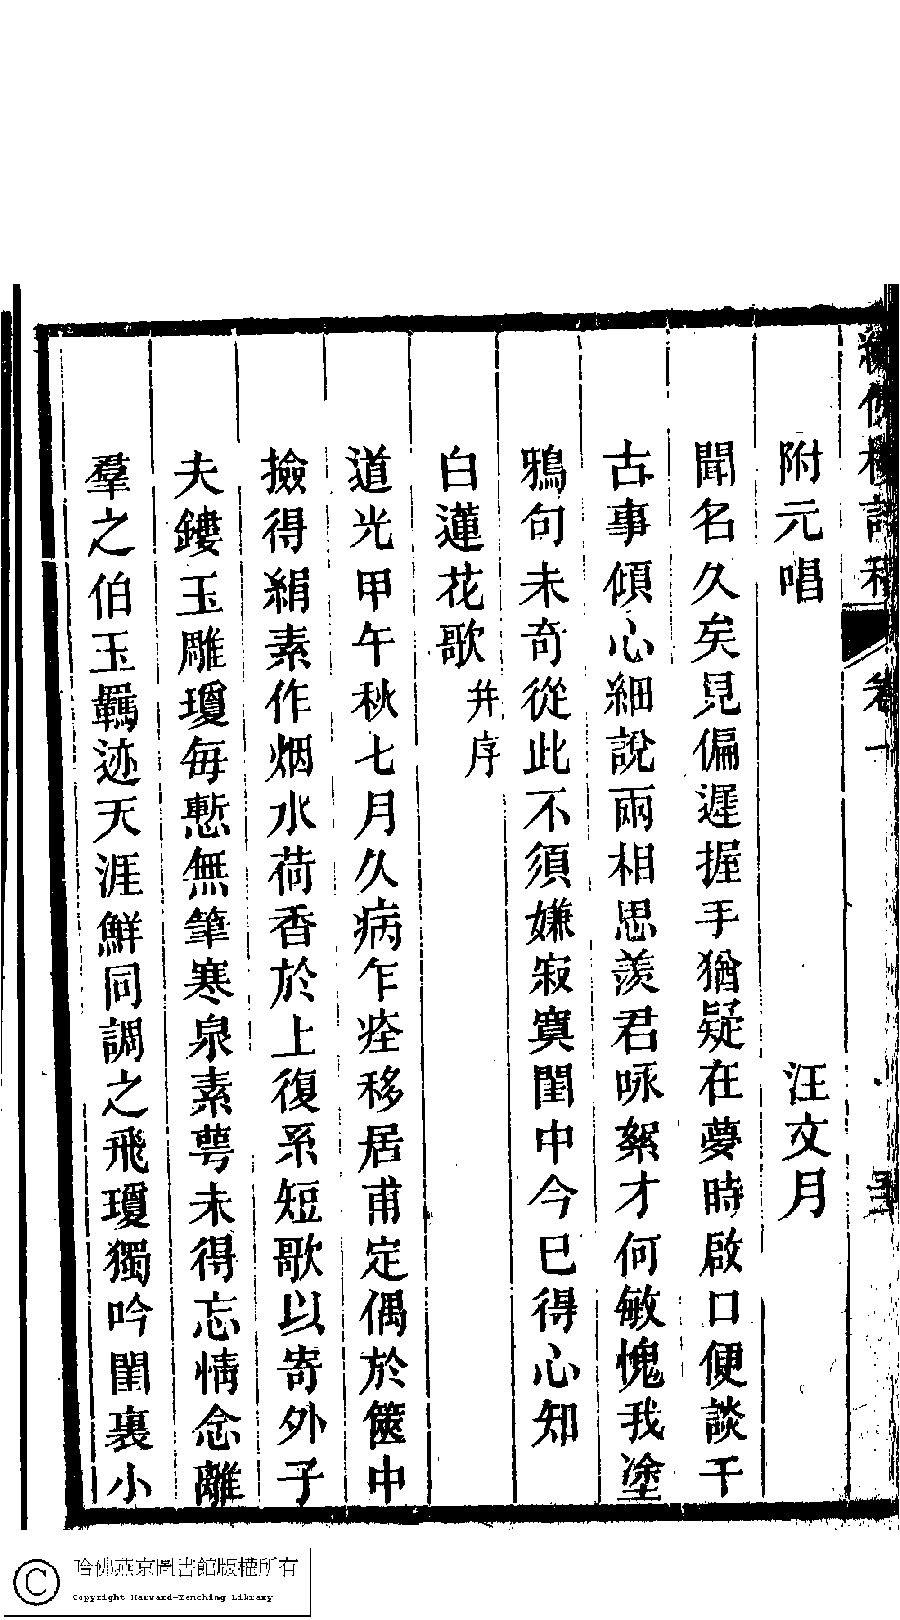 附元唱 汪文月
聞名久矣見偏遲握手猶疑在夢時啟口便談千
古事傾心細說兩相思羨君咏絮才何敏愧我塗
鴉句未奇從此不須嫌寂寞閨中今已得心知
白蓮花歌 并序
道光甲午秋七月久病乍痊移居甫定偶於篋中
撿得絹素作烟水荷香於上復系短歌以寄外子
夫鏤玉雕瓊每慙無筆寒泉素蕚未得忘情念離
羣之伯玉羈迹天涯鮮同調之飛瓊獨吟閨裏小
卷一
哈佛燕京圖書館版權所有
Copyright Harvard-Yenching Library